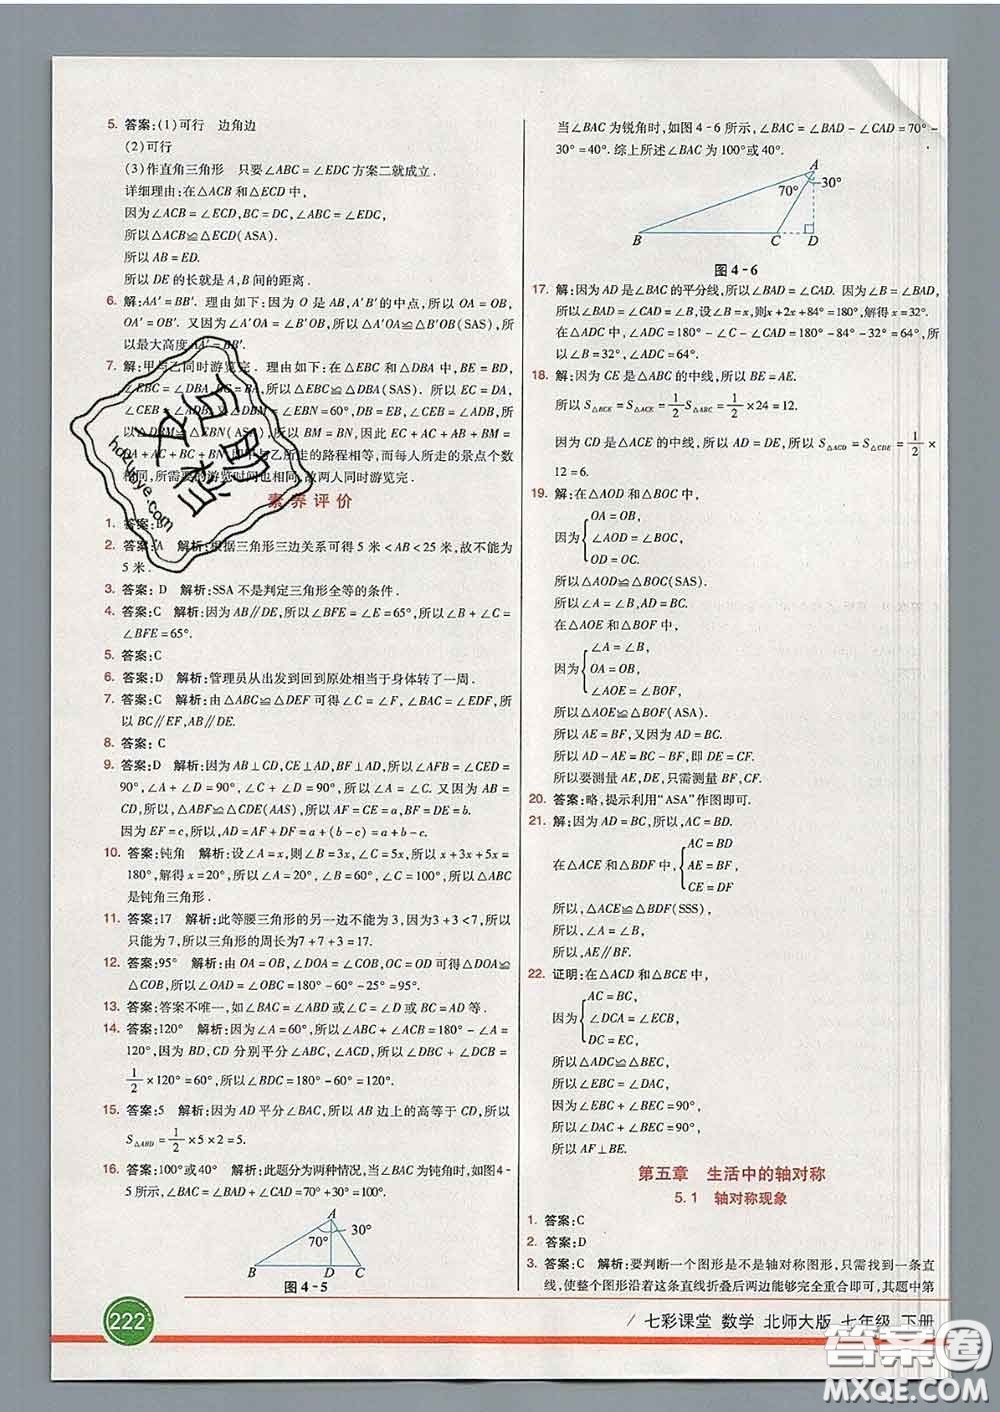 5. 答案:(1)可行　边角边
(2)可行
(3)作直角三角形　只要∠ABC=∠EDC方案二就成立.
详细理由:在△ACB和△ECD中,
因为∠ACB=∠ECD,BC=DC,∠ABC=∠EDC,
所以△ACB≌△ECD(ASA).
所以AB=ED.
所以DE的长就是A,B间的距离.
6. 解:AA′=BB′. 理由如下:因为O是AB,A′B′的中点,所以OA=OB,
OA′=OB′. 又因为∠A′OA=∠B′OB,所以△A′OA≌△B′OB(SAS),所
以最大高度AA′=BB′.
7. 解:甲与乙同时游览完. 理由如下:在△EBC和△DBA中,BE=BD,
∠EBC=∠DBA,BC=BA,所以△EBC≌△DBA(SAS). 所以EC=DA,
∠CEB=∠ADB. 又∠DBM=∠EBN=60°,DB=EB,∠CEB=∠ADB,所
以△DBM≌△EBN(ASA),所以BM=BN,因此EC+AC+AB+BM=
DA+AC+BC+BN,即甲与乙所走的路程相等,而每人所走的景点个数
相同,所需要的游览时间也相同,故两人同时游览完.
素养评价
1. 答案:B
2. 答案:A　解析:根据三角形三边关系可得5米<AB<25米,故不能为
5米.
3. 答案:D　解析:SSA不是判定三角形全等的条件.
4. 答案:C　解析:因为AB∥DE,所以∠BFE=∠E=65°,所以∠B+∠C=
∠BFE=65°.
5. 答案:C
6. 答案:D　解析:管理员从出发到回到原处相当于身体转了一周.
7. 答案:C　解析:由△ABC≌△DEF可得∠C=∠F,∠BAC=∠EDF,所
以BC∥EF,AB∥DE.
8. 答案:C
9. 答案:D　解析:因为AB⊥CD,CE⊥AD,BF⊥AD,所以∠AFB=∠CED=
90°,∠A+∠D=90°,∠C+∠D=90°,所以∠A=∠C. 又因为AB=
CD,所以△ABF≌△CDE(AAS),所以AF=CE=a,BF=DE=b.
因为EF=c,所以,AD=AF+DF=a+(b-c)=a+b-c.
10. 答案:钝角　解析:设∠A=x,则∠B=3x,∠C=5x,所以x+3x+5x=
180°,解得x=20°,所以∠A=20°,∠B=60°,∠C=100°,所以△ABC
是钝角三角形.
11. 答案:17　解析:此等腰三角形的另一边不能为3,因为3+3<7,所以
只能为7,所以三角形的周长为7+7+3=17.
12. 答案:95°　解析:由OA=OB,∠DOA=∠COB,OC=OD可得△DOA≌
△COB,所以∠OAD=∠OBC=180°-60°-25°=95°.
13. 答案:答案不唯一,如∠BAC=∠ABD或∠C=∠D或BC=AD等.
14. 答案:120°　解析:因为∠A=60°,所以∠ABC+∠ACB=180°-∠A=
120°,因为BD,CD分别平分∠ABC,∠ACD,所以∠DBC+∠DCB=
1/2×120°=60°,所以∠BDC=180°-60°=120°.
15. 答案:5　解析:因为AD平分∠BAC,所以AB边上的高等于CD,所以
S△ABD=1/2×5×2=5.
16. 答案:100°或40°　解析:此题分为两种情况,当∠BAC为钝角时,如图4-
5所示,∠BAC=∠BAD+∠CAD=70°+30°=100°.
A
70° 30°
B D C
图4-5
当∠BAC为锐角时,如图4-6所示,∠BAC=∠BAD-∠CAD=70°-
30°=40°. 综上所述∠BAC为100°或40°.
A
70° 30°
B C D
图4-6
17. 解:因为AD是∠BAC的平分线,所以∠BAD=∠CAD. 因为∠B=∠BAD,
所以∠BAD=∠CAD=∠B,设∠B=x,则x+2x+84°=180°,解得x=32°.
在△ADC中,∠ADC=180°-∠C-∠CAD=180°-84°-32°=64°,所
以∠B=32°,∠ADC=64°.
18. 解:因为CE是△ABC的中线,所以BE=AE.
所以S△BCE=S△ACE=1/2S△ABC=1/2×24=12.
因为CD是△ACE的中线,所以AD=DE,所以S△ACD=S△CDE=1/2×
12=6.
19. 解:在△AOD和△BOC中,
OA=OB,
因为 ∠AOD=∠BOC,
OD=OC.
所以△AOD≌△BOC(SAS).
所以∠A=∠B,AD=BC.
在△AOE和△BOF中,
∠A=∠B,
因为 OA=OB,
∠AOE=∠BOF,
所以△AOE≌△BOF(ASA).
所以AE=BF,又因为AD=BC.
所以AD-AE=BC-BF,即DE=CF.
所以要测量AE,DE,只需测量BF,CF.
20. 答案:略,提示利用“ASA”作图即可.
21. 解:因为AD=BC,所以,AC=BD.
AC=BD
在△ACE和△BDF中, AE=BF,
CE=DF
所以,△ACE≌△BDF(SSS),
所以,∠A=∠B,
所以,AE∥BF.
22. 证明:在△ACD和△BCE中,
AC=BC,
因为 ∠DCA=∠ECB,
DC=EC,
所以△ADC≌△BEC,
所以∠EBC=∠DAC,
因为∠EBC+∠BEC=90°,
所以∠DAC+∠BEC=90°,
所以AF⊥BE.
第五章　生活中的轴对称
5.1　轴对称现象
1. 答案:C
2. 答案:D
3. 答案:C　解析:要判断一个图形是不是轴对称图形,只需找到一条直
线,使整个图形沿着这条直线折叠后两边能够完全重合即可,其题中第
222
/ 七彩课堂 数学 北师大版 七年级 下册
答案圈
MXQE.COM